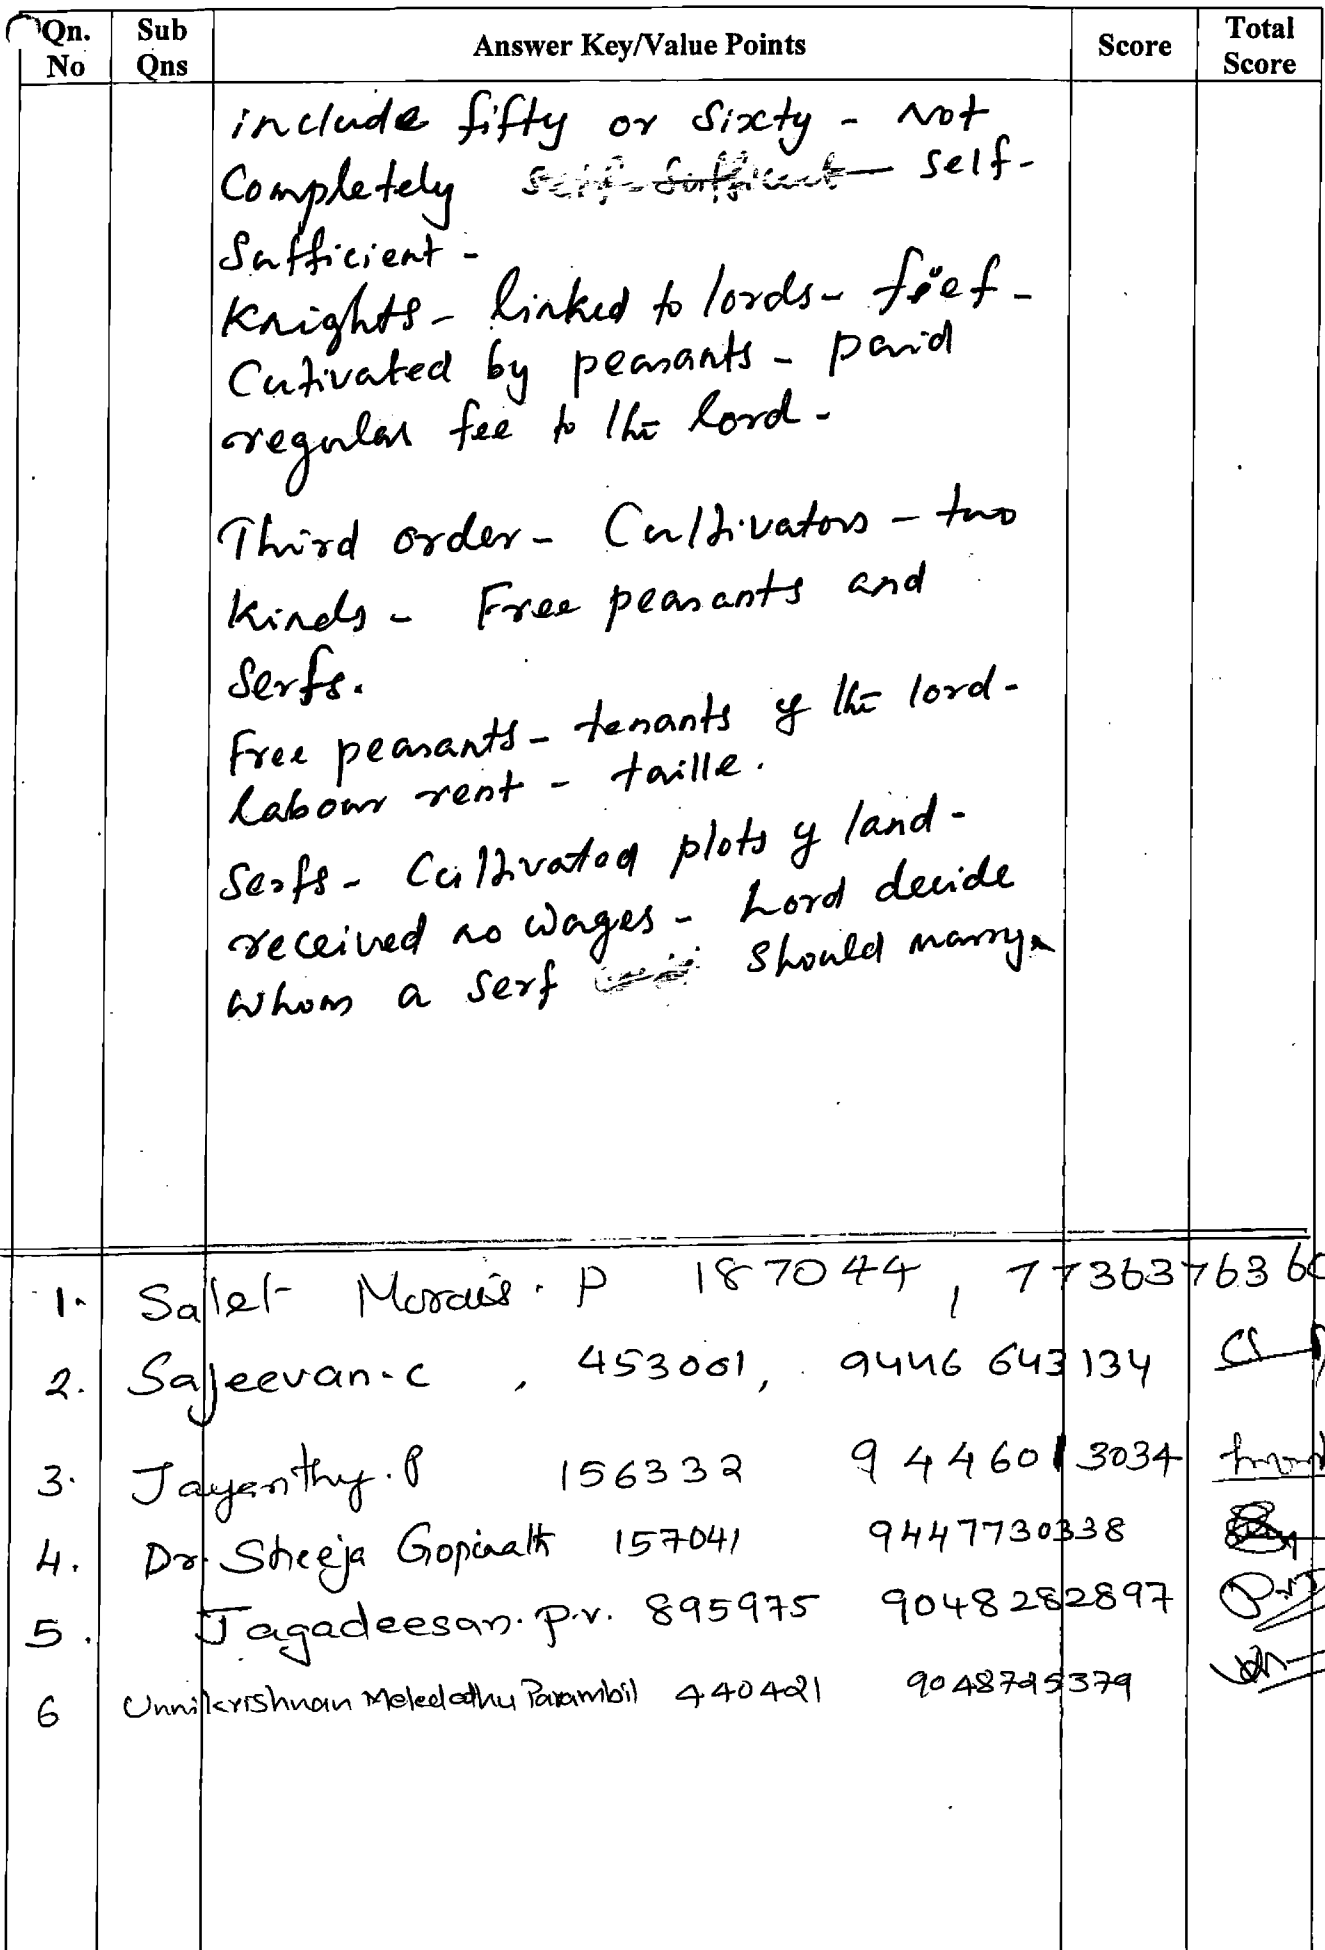 Qn. No | Sub Qns | Answer Key/Value Points | Score | Total Score
include fifty or Sixty - Not
Completely self-
Sufficient -
Knights - linked to lords - fief -
Cutivated by peasants - paid
regular fee to the lord -
Third order - Cultivators - two
kinds - Free peasants and
Serfs.
Free peasants - tenants of the lord -
labour rent - taille.
Serfs - Cultivated plots of land -
received no wages - Lord decide
whom a serf should marry.
1. Salet Morais. P 187044, 7736376360
2. Sajeevan. C, 453001, 9446 643134
3. Jayanthy. P 156332 9446013034
4. Dr. Sheeja Gopinath 157041 9447730338
5. Jagadeesan. P.V. 895975 9048282897
6 Unnikrishnan Parambil 440421